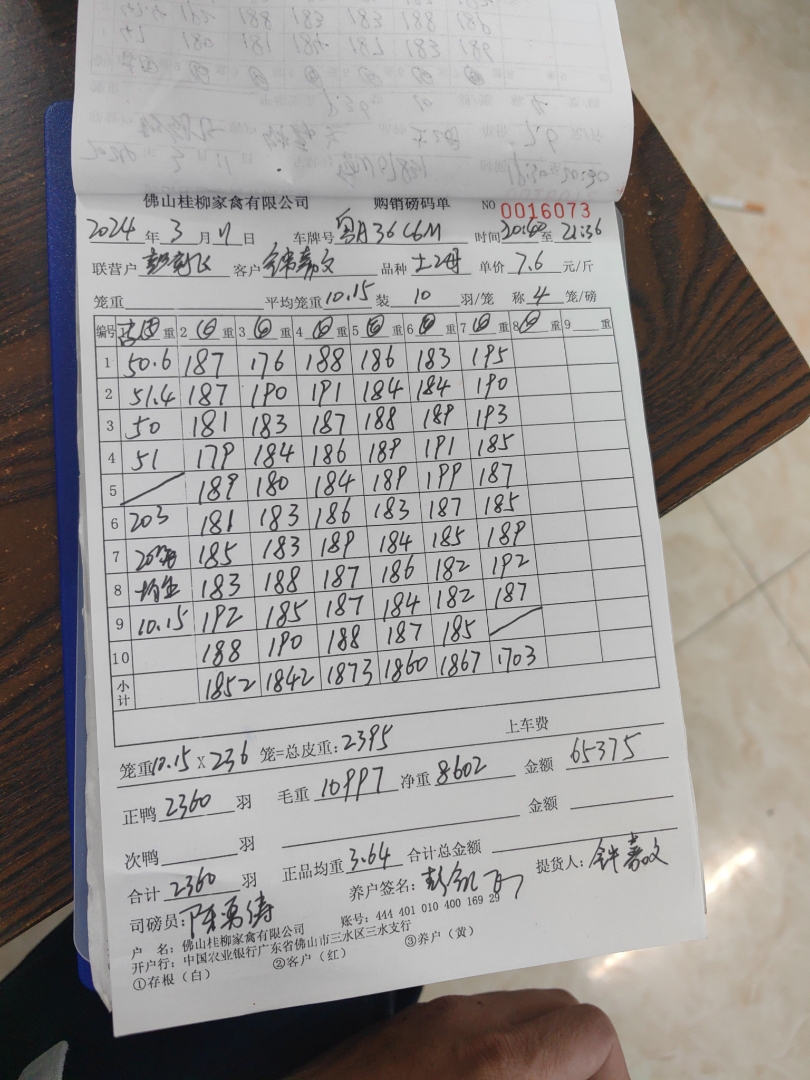 佛山桂柳家禽有限公司 购销磅码单 NO 0016073
2024 年 3 月 11 日 车牌号 粤A36C6M 时间 20:40 至 21:36
联营户 客户 钟嘉文 品种 土2母 单价 7.6 元/斤
笼重 平均笼重 10.15 装 10 羽/笼 称 4 笼/磅
编号 重 2 重 3 重 4 重 5 重 6 重 7 重 8 重 9 重
1 50.6 187 176 188 186 183 195
2 51.4 187 190 191 184 184 190
3 50 181 183 187 188 189 193
4 51 179 184 186 189 191 185
5 189 180 184 189 199 187
6 203 181 183 186 183 187 185
7 185 183 189 184 185 189
8 183 188 187 186 182 192
9 10.15 192 185 187 184 182 187
10 188 190 188 187 185
小计 1852 1842 1873 1860 1867 1703
笼重 10.15 X 236 笼=总皮重: 2395 上车费
正鸭 2360 羽 毛重 10997 净重 8602 金额 65375
次鸭 羽 金额
合计 2360 羽 正品均重 3.64 合计总金额
司磅员: 陈勇涛 养户签名: 提货人: 钟嘉文
户 名: 佛山桂柳家禽有限公司 账号: 444 401 010 400 169 29
开户行: 中国农业银行广东省佛山市三水区三水支行
①存根（白） ②客户（红） ③养户（黄）